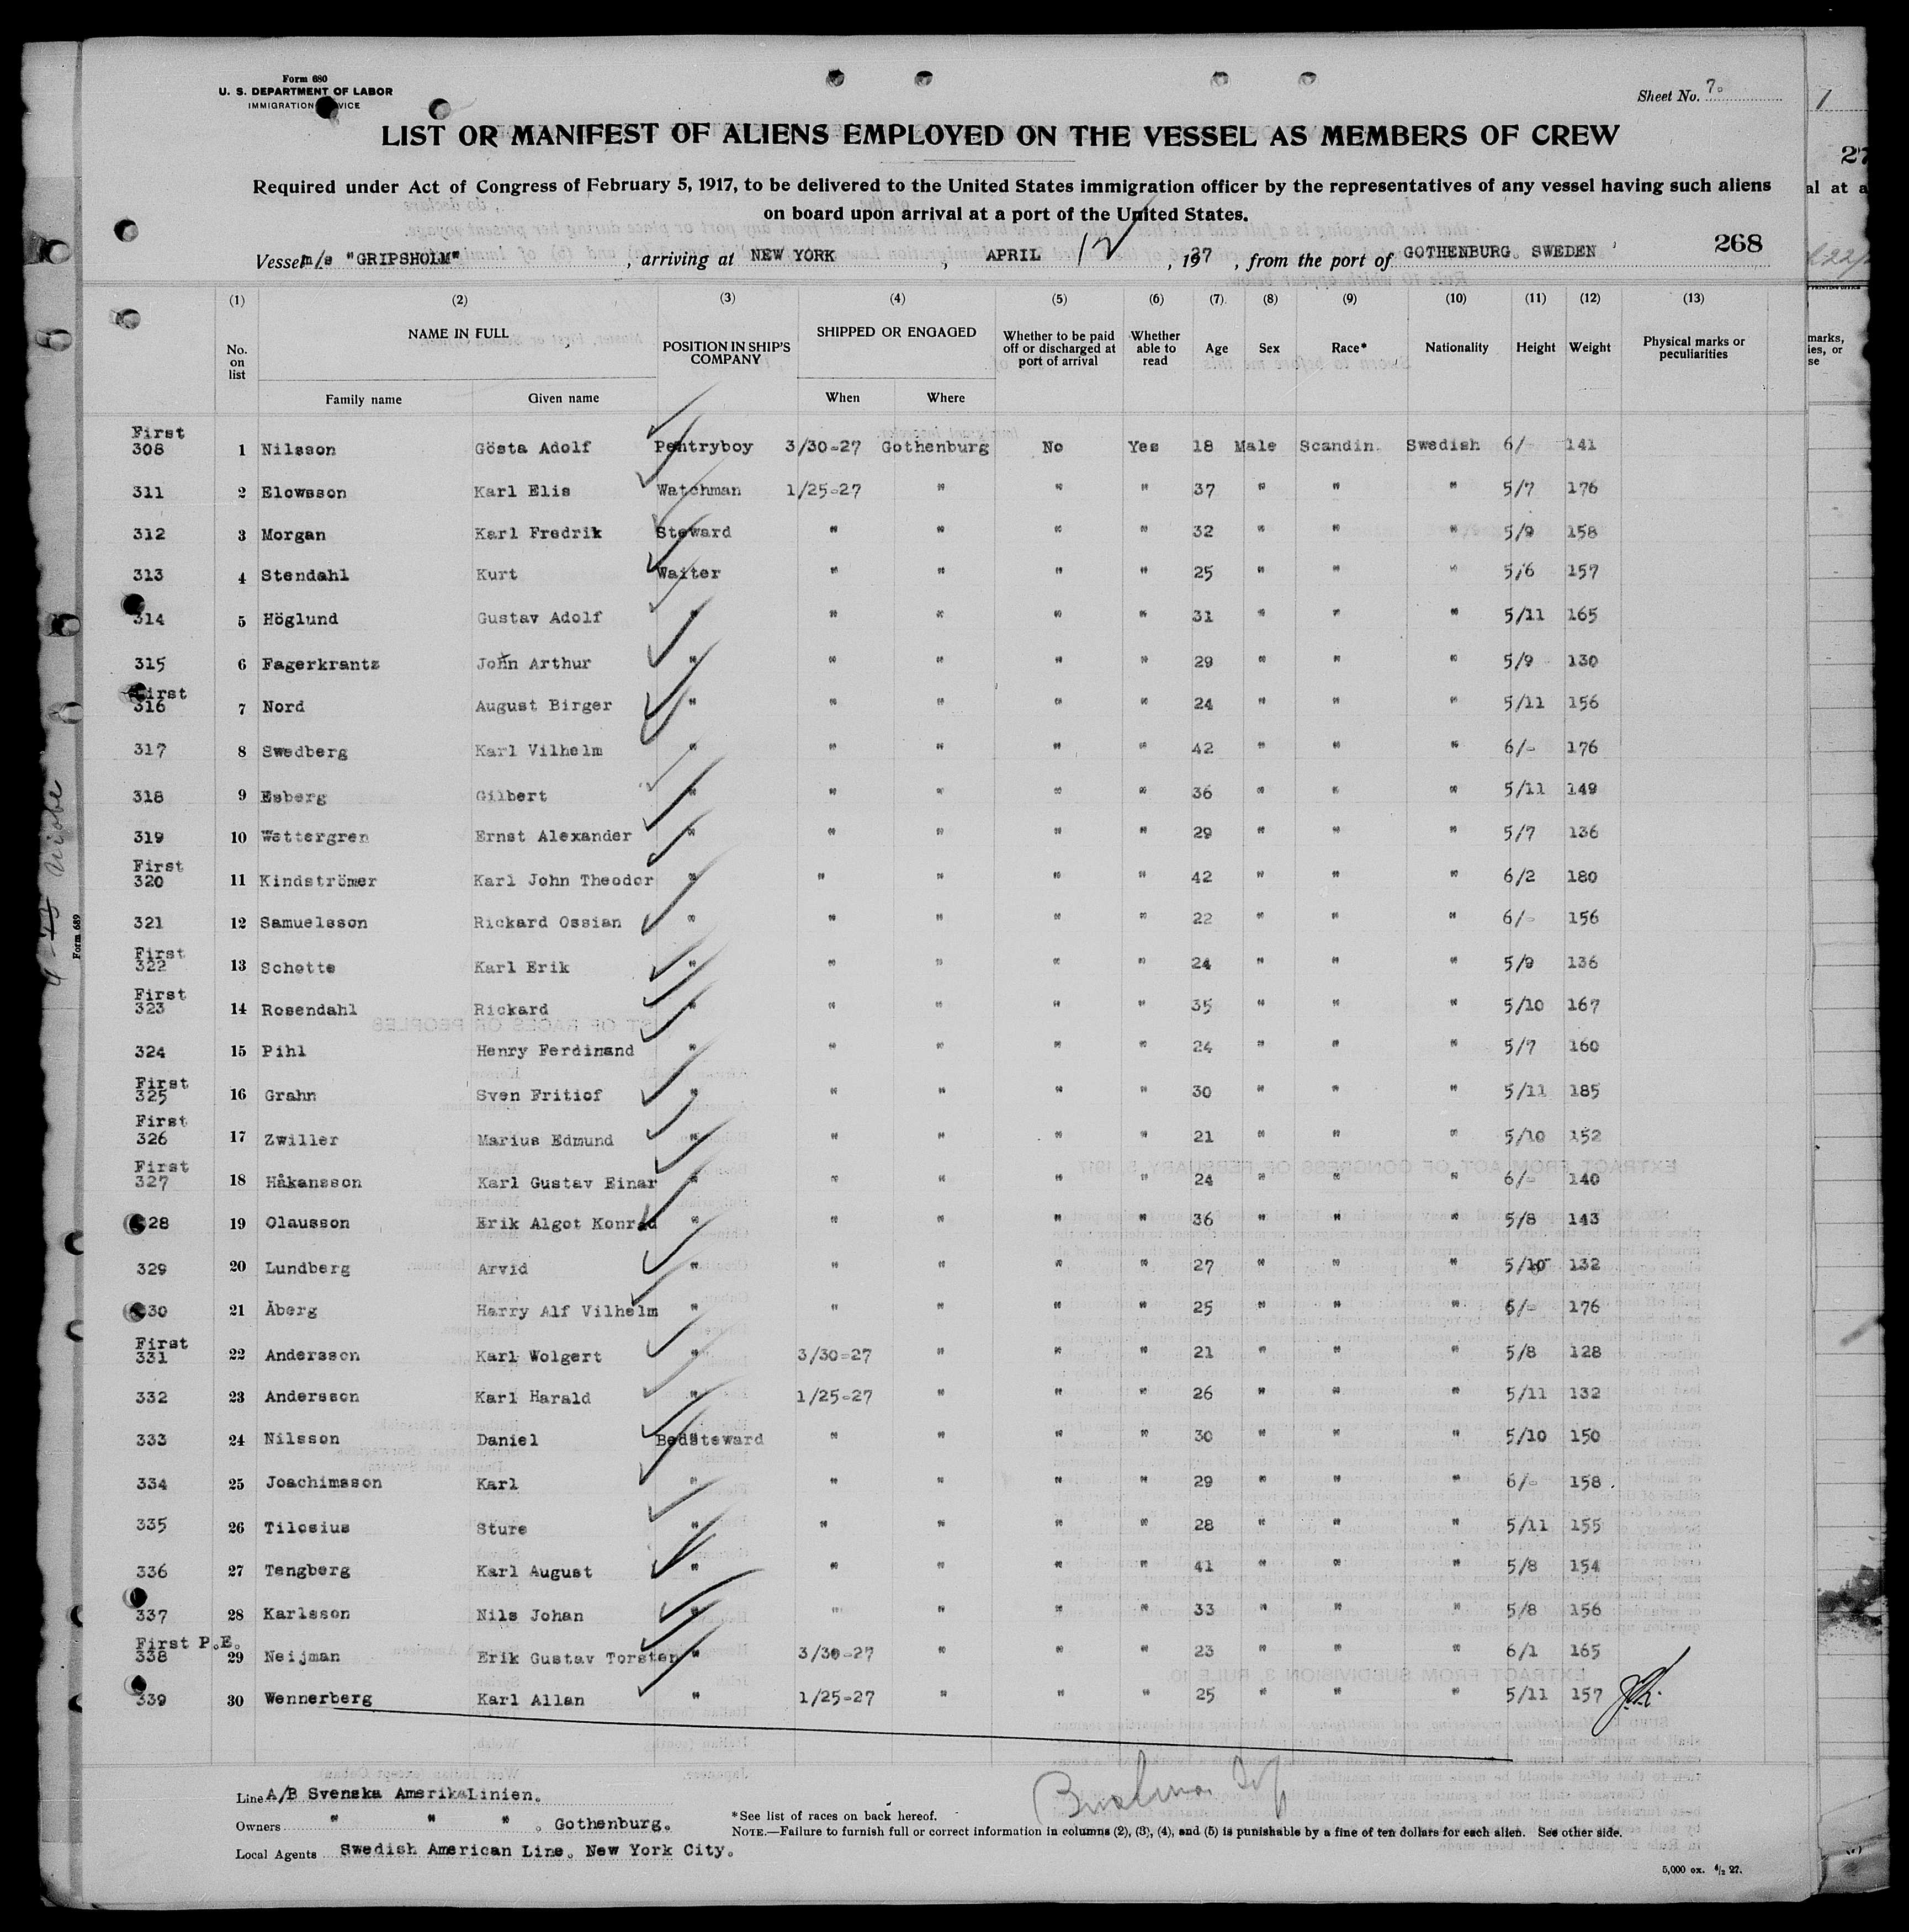 Form 680
U. S. DEPARTMENT OF LABOR
IMMIGRATION VICE
Sheet No. 7.
LIST OR MANIFEST OF ALIENS EMPLOYED ON THE VESSEL AS MEMBERS OF CREW
Required under Act of Congress of February 5, 1917, to be delivered to the United States immigration officer by the representatives of any vessel having such aliens
on board upon arrival at a port of the United States.
Vessel m/s "GRIPSHOLM", arriving at NEW YORK, APRIL 12, 1927, from the port of GOTHENBURG. SWEDEN 268
(1) (2) (3) (4) (5) (6) (7) (8) (9) (10) (11) (12) (13)
No. on list NAME IN FULL POSITION IN SHIP'S COMPANY SHIPPED OR ENGAGED Whether to be paid off or discharged at port of arrival Whether able to read Age Sex Race* Nationality Height Weight Physical marks or peculiarities
Family name Given name When Where
First
308 1 Nilsson Gösta Adolf Pentryboy 3/30-27 Gothenburg No Yes 18 Male Scandin. Swedish 6/- 141
311 2 Elowsson Karl Elis Watchman 1/25-27 " " " 37 " " " 5/7 176
312 3 Morgan Karl Fredrik Steward " " " " 32 " " " 5/9 158
313 4 Stendahl Kurt Waiter " " " " 25 " " " 5/6 157
314 5 Höglund Gustav Adolf " " " " " 31 " " " 5/11 165
315 6 Fagerkrantz John Arthur " " " " " 29 " " " 5/9 130
First
316 7 Nord August Birger " " " " " 24 " " " 5/11 156
317 8 Swedberg Karl Vilhelm " " " " " 42 " " " 6/- 176
318 9 Esberg Gilbert " " " " " 36 " " " 5/11 149
319 10 Wettergren Ernst Alexander " " " " " 29 " " " 5/7 136
First
320 11 Kindströmer Karl John Theodor " " " " " 42 " " " 6/2 180
321 12 Samuelsson Rickard Ossian " " " " " 22 " " " 6/- 156
First
322 13 Schotte Karl Erik " " " " " 24 " " " 5/9 136
First
323 14 Rosendahl Rickard " " " " " 35 " " " 5/10 167
324 15 Pihl Henry Ferdinand " " " " " 24 " " " 5/7 160
First
325 16 Grahn Sven Fritiof " " " " " 30 " " " 5/11 185
First
326 17 Zwiller Marius Edmund " " " " " 21 " " " 5/10 152
First
327 18 Håkansson Karl Gustav Einar " " " " 24 " " " 6/- 140
28 19 Olausson Erik Algot Konrad " " " " " 36 " " " 5/8 143
329 20 Lundberg Arvid " " " " " 27 " " " 5/10 132
30 21 Åberg Harry Alf Vilhelm " " " " " 25 " " " 6/- 176
First
331 22 Andersson Karl Wolgert " 3/30-27 " " " 21 " " " 5/8 128
332 23 Andersson Karl Harald " 1/25-27 " " " 26 " " " 5/11 132
333 24 Nilsson Daniel Bedsteward " " " " 30 " " " 5/10 150
334 25 Joachimsson Karl " " " " " 29 " " " 6/- 158
335 26 Tilosius Sture " " " " " 28 " " " 5/11 155
336 27 Tengberg Karl August " " " " " 41 " " " 5/8 154
337 28 Karlsson Nils Johan " " " " " 33 " " " 5/8 156
First P.E.
338 29 Neijman Erik Gustav Torsten " 3/30-27 " " " 23 " " " 6/1 165
339 30 Wennerberg Karl Allan " 1/25-27 " " " 25 " " " 5/11 157
Line A/B Svenska AmerikaLinien.
Owners " " " . Gothenburg.
Local Agents Swedish American Line. New York City.
*See list of races on back hereof.
NOTE.—Failure to furnish full or correct information in columns (2), (3), (4), and (5) is punishable by a fine of ten dollars for each alien. See other side.
5,000 ex. 4/2 27.
Form 689